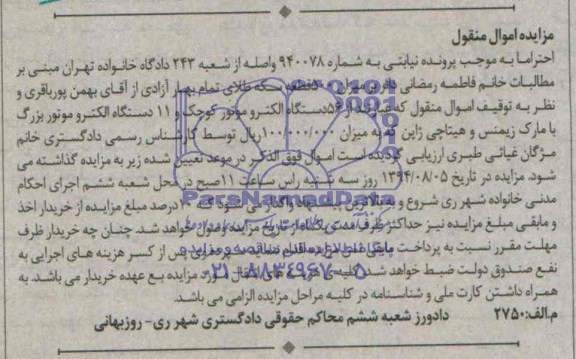 مزایده اموال منقول
احتراما به موجب پرونده نیابتی به شماره ۹۴۰۰۷۸ واصله از شعبه ۲۴۳ دادگاه خانواده تهران مبنی بر
مطالبات خانم فاطمه رمضانی به میزان قطعه سکه طلای تمام بهار آزادی از آقای بهمن پورباقری و
نظر به توقیف اموال منقول که عبارتند از دستگاه الکترو موتور کوچک و ۱۱ دستگاه الکترو موتور بزرگ
با مارک زیمنس و هیتاچی ژاپن که به میزان ۱۰۰/۰۰۰/۰۰۰ ریال توسط کارشناس رسمی دادگستری خانم
مژگان غیاثی طبری ارزیابی گردیده است اموال فوق الذکر در موعد تعیین شده زیر به مزایده گذاشته می
شود. مزایده در تاریخ ۱۳۹۴/۰۸/۰۵ روز سه شنبه راس ساعت ۱۱ صبح در محل شعبه ششم اجرای احکام
مدنی خانواده شهر ری شروع و به بالاترین واگذار می شود درصد مبلغ مزایده از خریدار اخذ
و مابقی مبلغ مزایده نیز حداکثر ظرف مدت یکماه از تاریخ مزایده وصول خواهد شد. چنان چه خریدار ظرف
مهلت مقرر نسبت به پرداخت مابقی اقدام ننماید پس از کسر هزینه های اجرایی به
نفع صندوق دولت ضبط خواهد شد. کلیه هزینه های انتقال مورد مزایده به عهده خریدار می باشد. به
همراه داشتن کارت ملی و شناسنامه در کلیه مراحل مزایده الزامی می باشد.
م.الف: ۲۷۵۰ دادورز شعبه ششم محاکم حقوقی دادگستری شهر ری- روزبهانی
ParsNamadData
۰۲۱-۸۸۳۴۹۶۷۰-۵